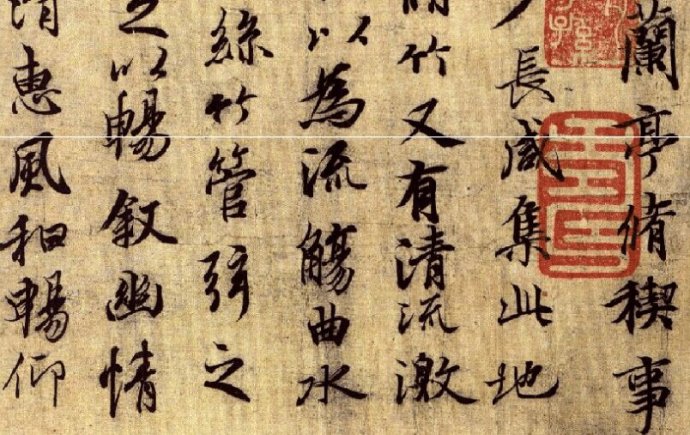 蘭亭脩稧事
長咸集此地
竹又有清流激
以為流觴曲水
絲竹管弦之
以暢叙幽情
清惠風和暢仰